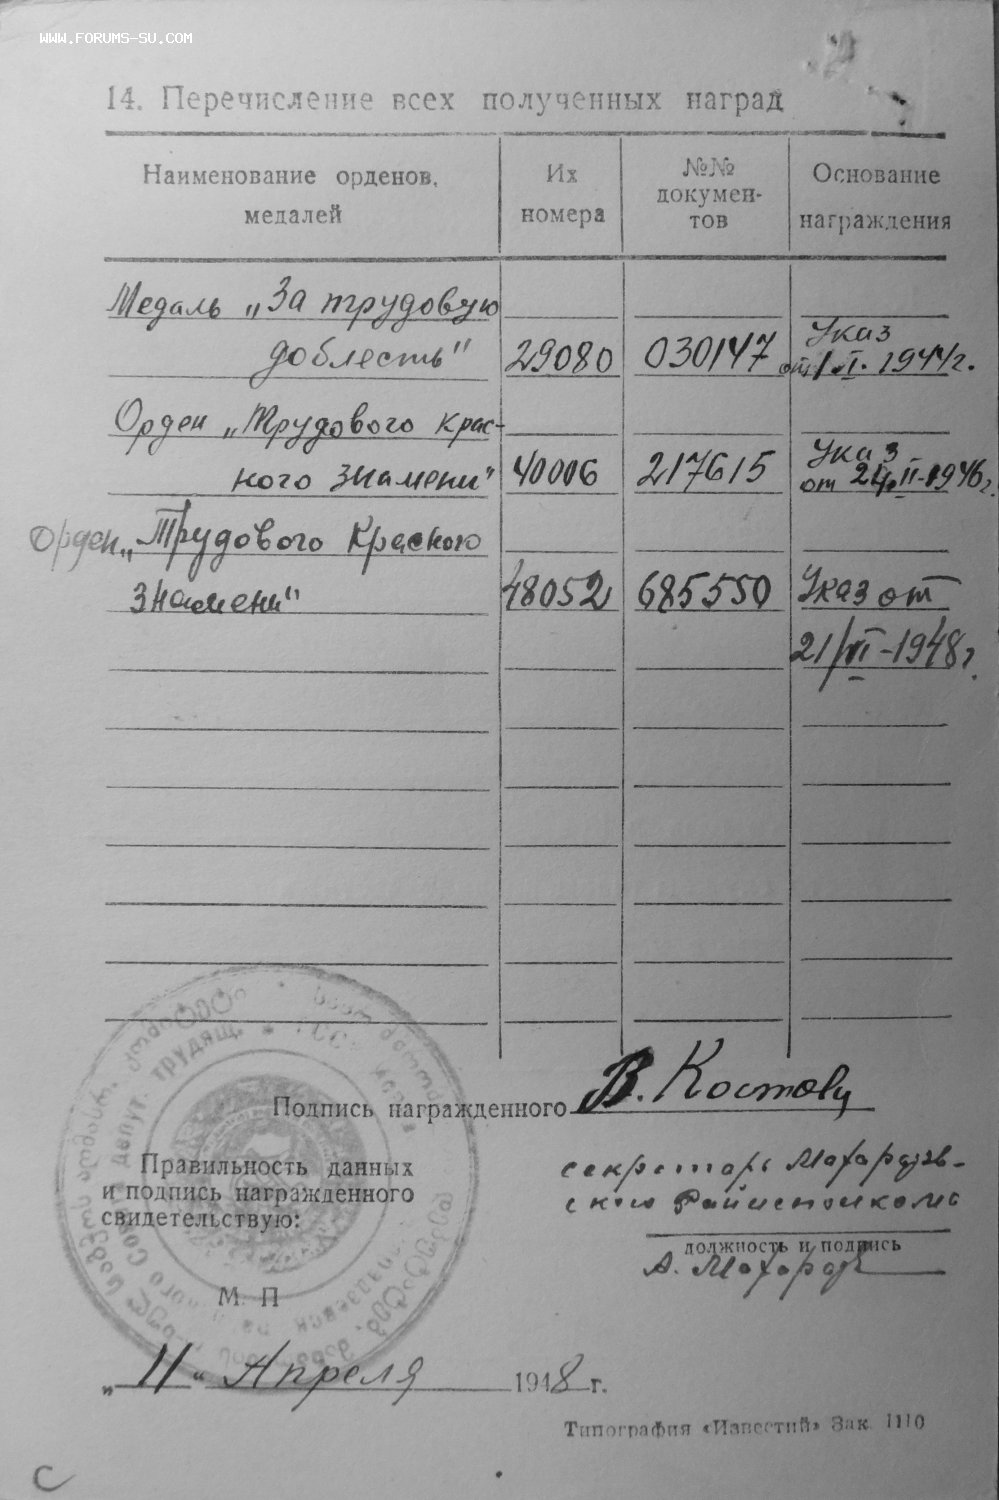 WWW.FORUMS-SU.COM
14. Перечисление всех полученных наград
Наименование орденов, медалей
Их номера
№№ документов
Основание награждения
Медаль „За трудовую
доблесть" 29080 030147 Указ
от 1.II. 1944г.
Орден „Трудового Крас-
ного Знамени" 40006 217615 Указ
от 24.II-1946г.
Орден „Трудового Красного
Знамени" 48052 685550 Указ от
21/VI-1948г.
Подпись награжденного В.
Правильность данных
и подпись награжденного
свидетельствую:
секретарь Махарадзев-
ского Райисполкома
должность и подпись
А. Махарадзе
М. П
„11" Апреля 1948 г.
Типография «Известий» Зак. 1110
С
ТРУДЯЩ.
ДЕПУТ.